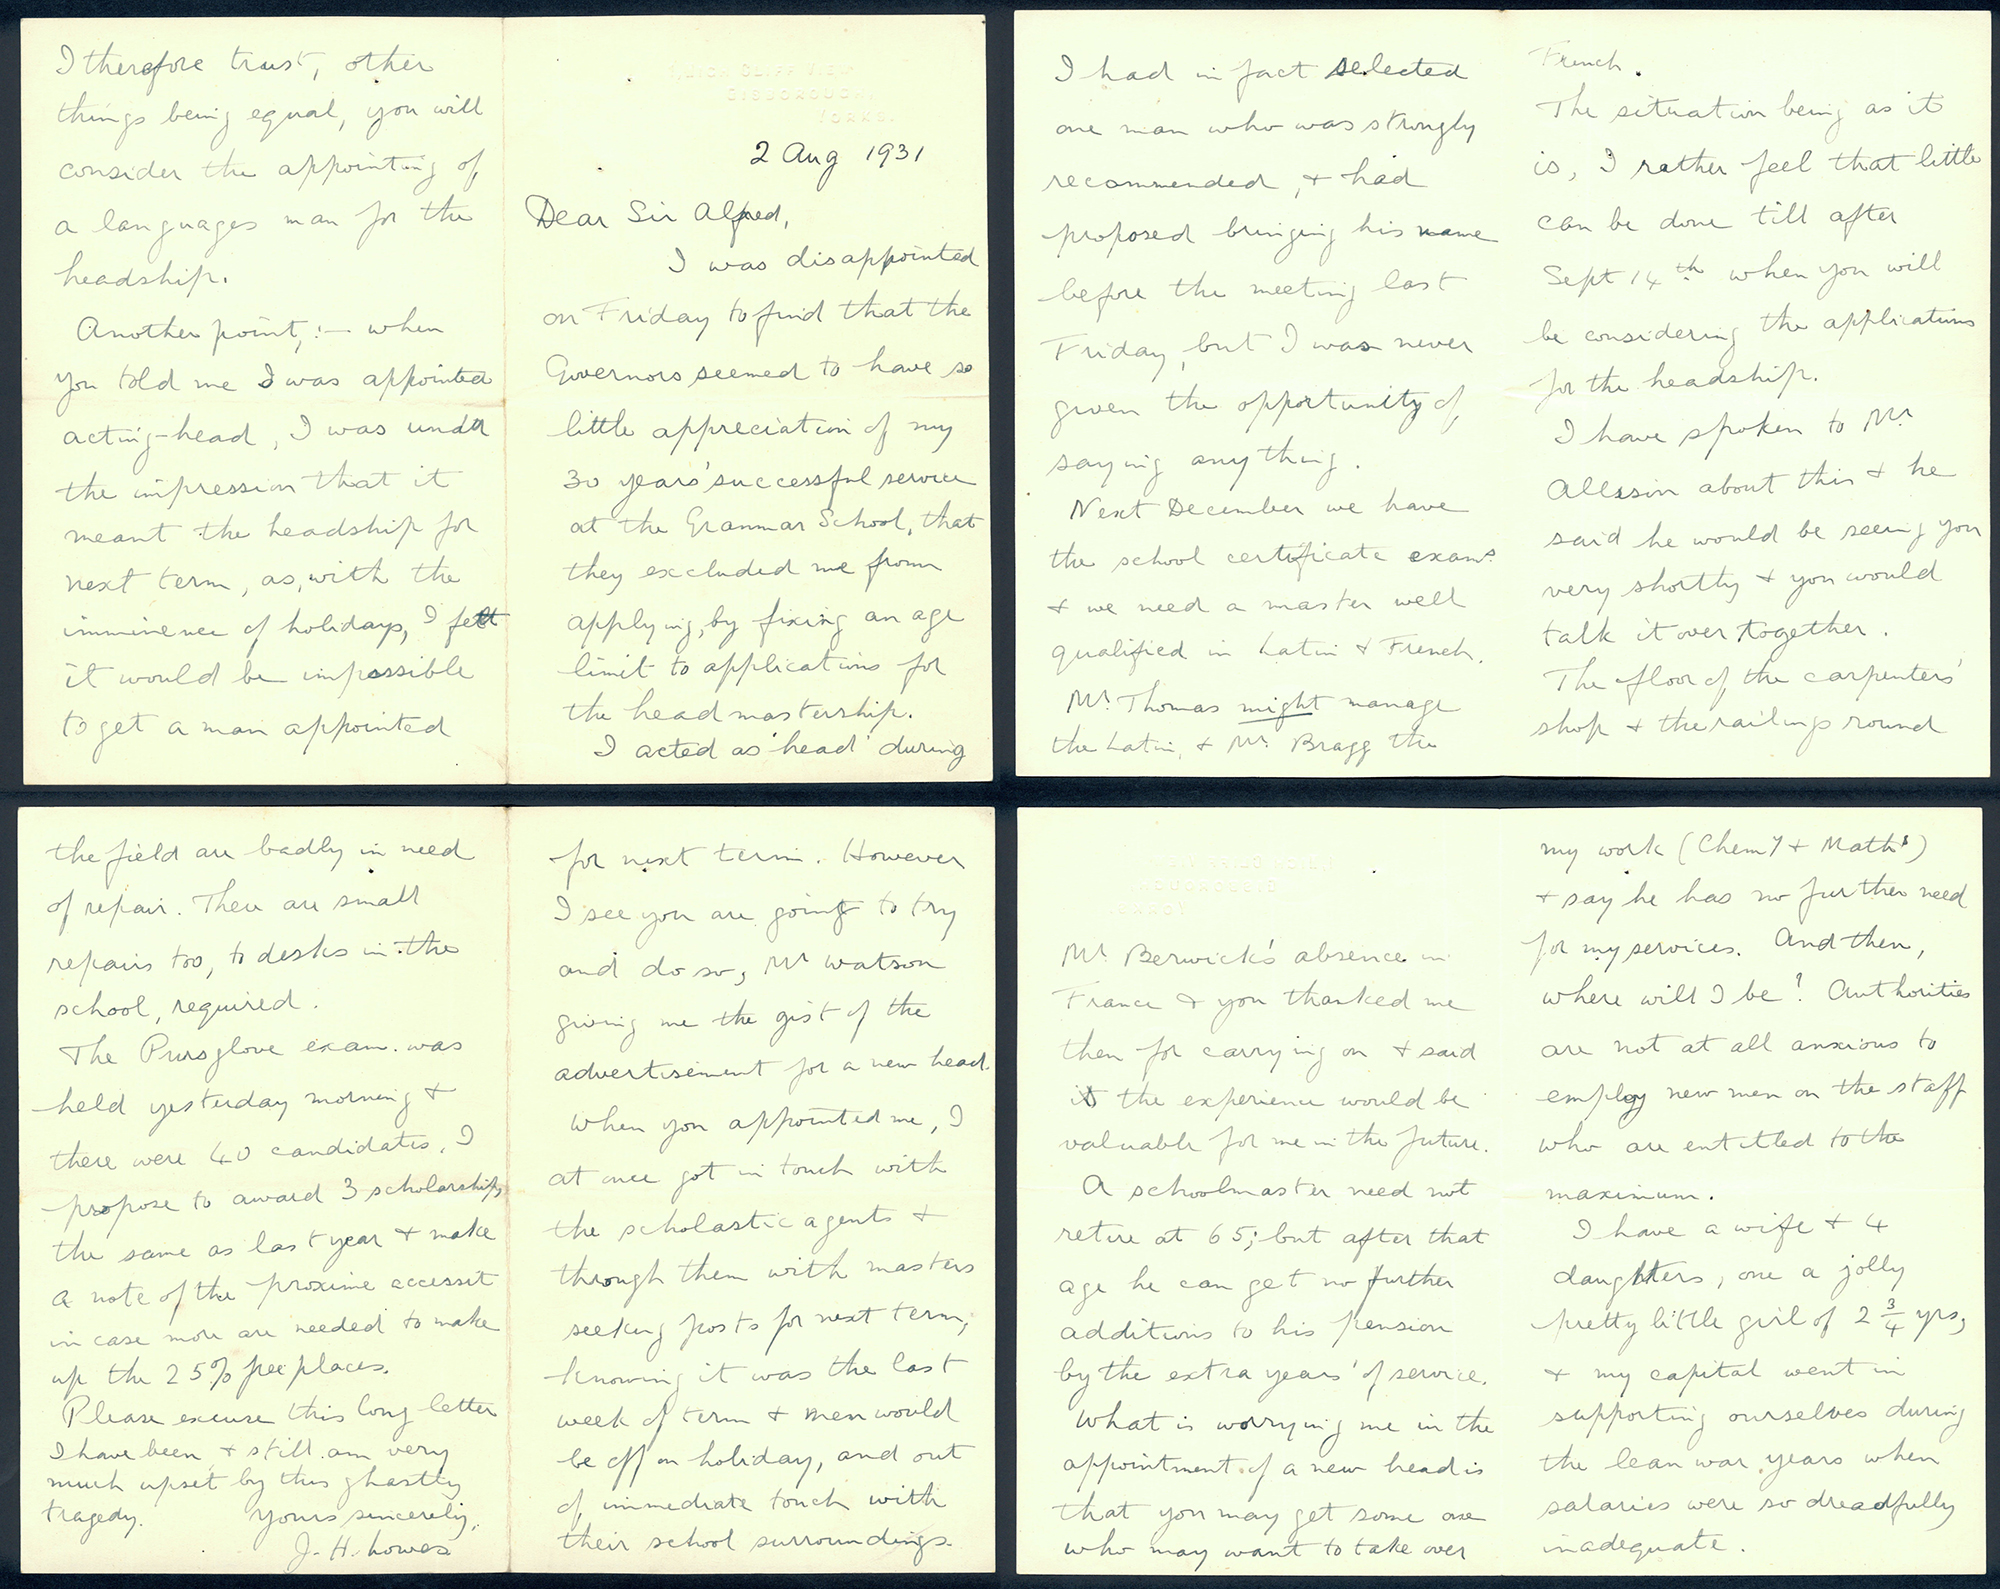 HIGH CLIFF VIEW,
GISBOROUGH,
YORKS.
2 Aug 1931
Dear Sir Alfred,
I was disappointed
on Friday to find that the
Governors seemed to have so
little appreciation of my
30 years' successful service
at the Grammar School, that
they excluded me from
applying, by fixing an age
limit to applications for
the headmastership.
I acted as 'head' during
Mr. Berwick's absence in
France & you thanked me
then for carrying on & said
it the experience would be
valuable for me in the future.
A schoolmaster need not
retire at 65; but after that
age he can get no further
additions to his pension
by the extra years' of service.
What is worrying me in the
appointment of a new head is
that you may get some one
who may want to take over
my work (Chemy & Maths)
& say he has no further need
for my services. And then,
where will I be? Authorities
are not at all anxious to
employ new men on the staff
who are entitled to the
maximum.
I have a wife & 4
daughters, one a jolly
pretty little girl of 2 3/4 yrs,
& my capital went in
supporting ourselves during
the lean war years when
salaries were so dreadfully
inadequate.
I therefore trust, other
things being equal, you will
consider the appointing of
a languages man for the
headship.
Another point,:— when
you told me I was appointed
acting-head, I was under
the impression that it
meant the headship for
next term, as, with the
imminence of holidays, I felt
it would be impossible
to get a man appointed
for next term. However
I see you are going to try
and do so, Mr Watson
giving me the gist of the
advertisement for a new head.
When you appointed me, I
at once got in touch with
the scholastic agents &
through them with masters
seeking posts for next term,
knowing it was the last
week of term & men would
be off on holiday, and out
of immediate touch with
their school surroundings.
I had in fact selected
one man who was strongly
recommended, & had
proposed bringing his name
before the meeting last
Friday, but I was never
given the opportunity of
saying anything.
Next December we have
the school certificate exams
& we need a master well
qualified in Latin & French.
Mr. Thomas might manage
the Latin, & Mr. Bragg the
French.
The situation being as it
is, I rather feel that little
can be done till after
Sept 14th when you will
be considering the applications
for the headship.
I have spoken to Mr
Allison about this & he
said he would be seeing you
very shortly & you would
talk it over together.
The floor of the carpenters'
shop & the railings round
the field are badly in need
of repair. There are small
repairs too, to desks in the
school, required.
The Pursglove exam. was
held yesterday morning &
there were 40 candidates. I
propose to award 3 scholarships
the same as last year & make
a note of the proxime accessit
in case more are needed to make
up the 25% free places.
Please excuse this long letter
I have been & still am very
much upset by this ghastly
tragedy.
Yours sincerely,
J. H. Lowes